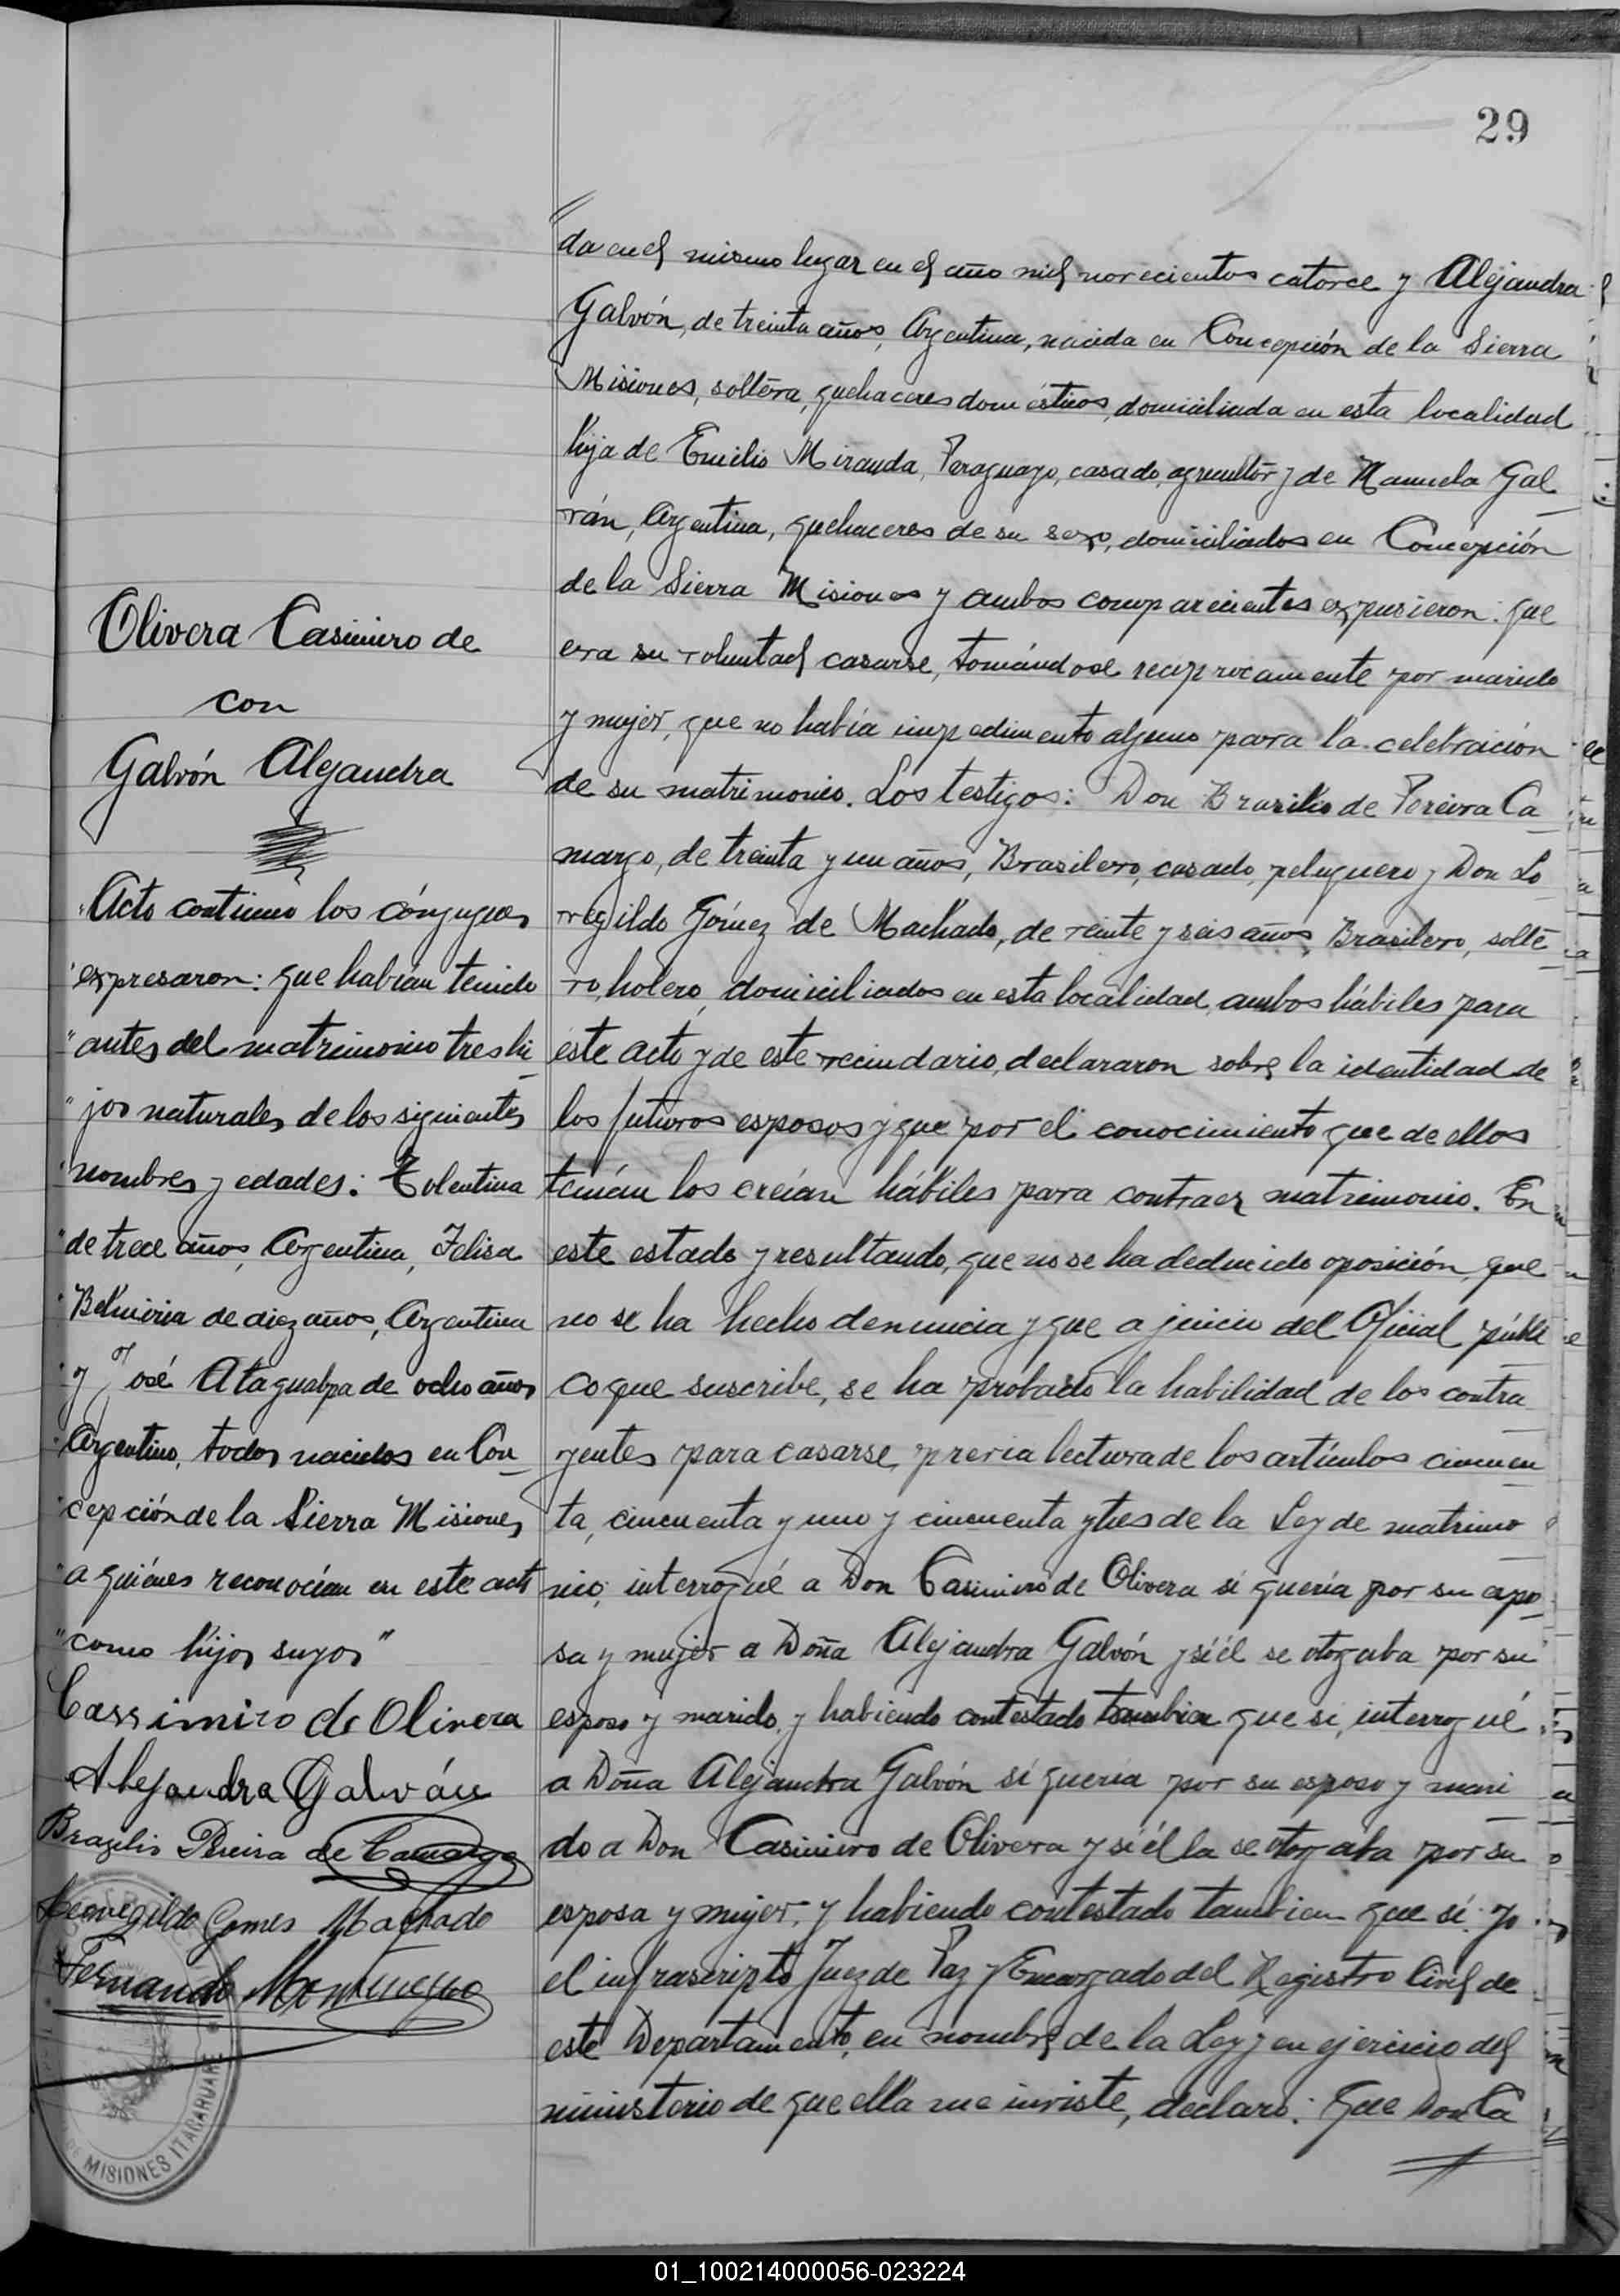 29
Olivera Casimiro de
con
Galvón Alejandra
"Acto continuo los cónyuges
"expresaron: que habían tenido
"antes del matrimonio tres hi
"jos naturales de los siguientes
"nombres y edades: Tolentina
"de trece años, Argentina, Felisa
"de diez años, Argentina
"y José Atagualpa de ocho años
"Argentino, todos nacidos en Con
"cepción de la Sierra Misiones,
"a quiénes reconocían en este acto
"como hijos suyos"
Cassimiro de Olivera
Alejandra Galván
Brazilio Pereira de Camargo
Gomes Machado
Fernando
MISIONES ITACARUARE
da en el mismo lugar en el año mil novecientos catorce y Alejandra
Galvón, de treinta años, Argentina, nacida en Concepción de la Sierra
Misiones, soltera, quehaceres domésticos, domiciliada en esta localidad
hija de Emilio Miranda, Paraguayo, casado, agricultor y de Manuela Gal
ván, Argentina, quehaceres de su sexo, domiciliados en Concepción
de la Sierra Misiones y ambos comparecientes expusieron: que
era su voluntad casarse, tomándose reciprocamente por marido
y mujer, que no había impedimento alguno para la celebración
de su matrimonio. Los testigos: Don Brasilio de Pereira Ca
margo, de treinta y un años, Brasilero, casado, peluquero y Don Lo
vegildo Gómez de Machado, de veinte y seis años, Brasilero, solte
ro, holero, domiciliados en esta localidad, ambos hábiles para
este acto y de este vecindario, declararon sobre la identidad de
los futuros esposos y que por el conocimiento que de ellos
tenían los creían hábiles para contraer matrimonio. En
este estado y resultando, que no se ha deducido oposición, que
no se ha hecho denuncia y que a juicio del Oficial públi
co que suscribe, se ha probado la habilidad de los contra
yentes para casarse, previa lectura de los artículos cincuen
ta, cincuenta y uno y cincuenta y tres de la Ley de matrimo
nio, interrogué a Don Casimiro de Olivera si quería por su espo
sa y mujer a Doña Alejandra Galvón y si él se otorgaba por su
esposo y marido, y habiendo contestado tambien que si, interrogué
a Doña Alejandra Galvón si quería por su esposo y mari
do a Don Casimiro de Olivera y si élla se otorgaba por su
esposa y mujer, y habiendo contestado tambien que si: yo
el infrascripto Juez de Paz y Encargado del Registro Civil de
este Departamento, en nombre de la Ley y en ejercicio del
ministerio de que ella me inviste, declaro: Que Don Ca
01_100214000056-023224